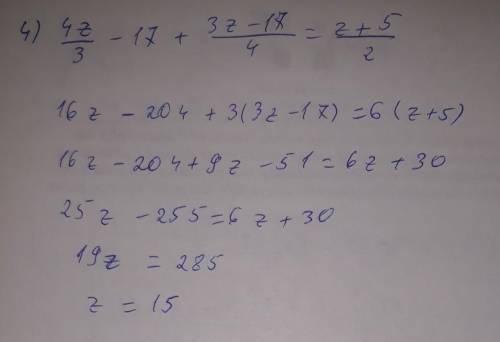 4) 4z/3 - 17 + (3z - 17)/4 = (z + 5)/2
16z - 204 + 3(3z - 17) = 6(z + 5)
16z - 204 + 9z - 51 = 6z + 30
25z - 255 = 6z + 30
19z = 285
z = 15